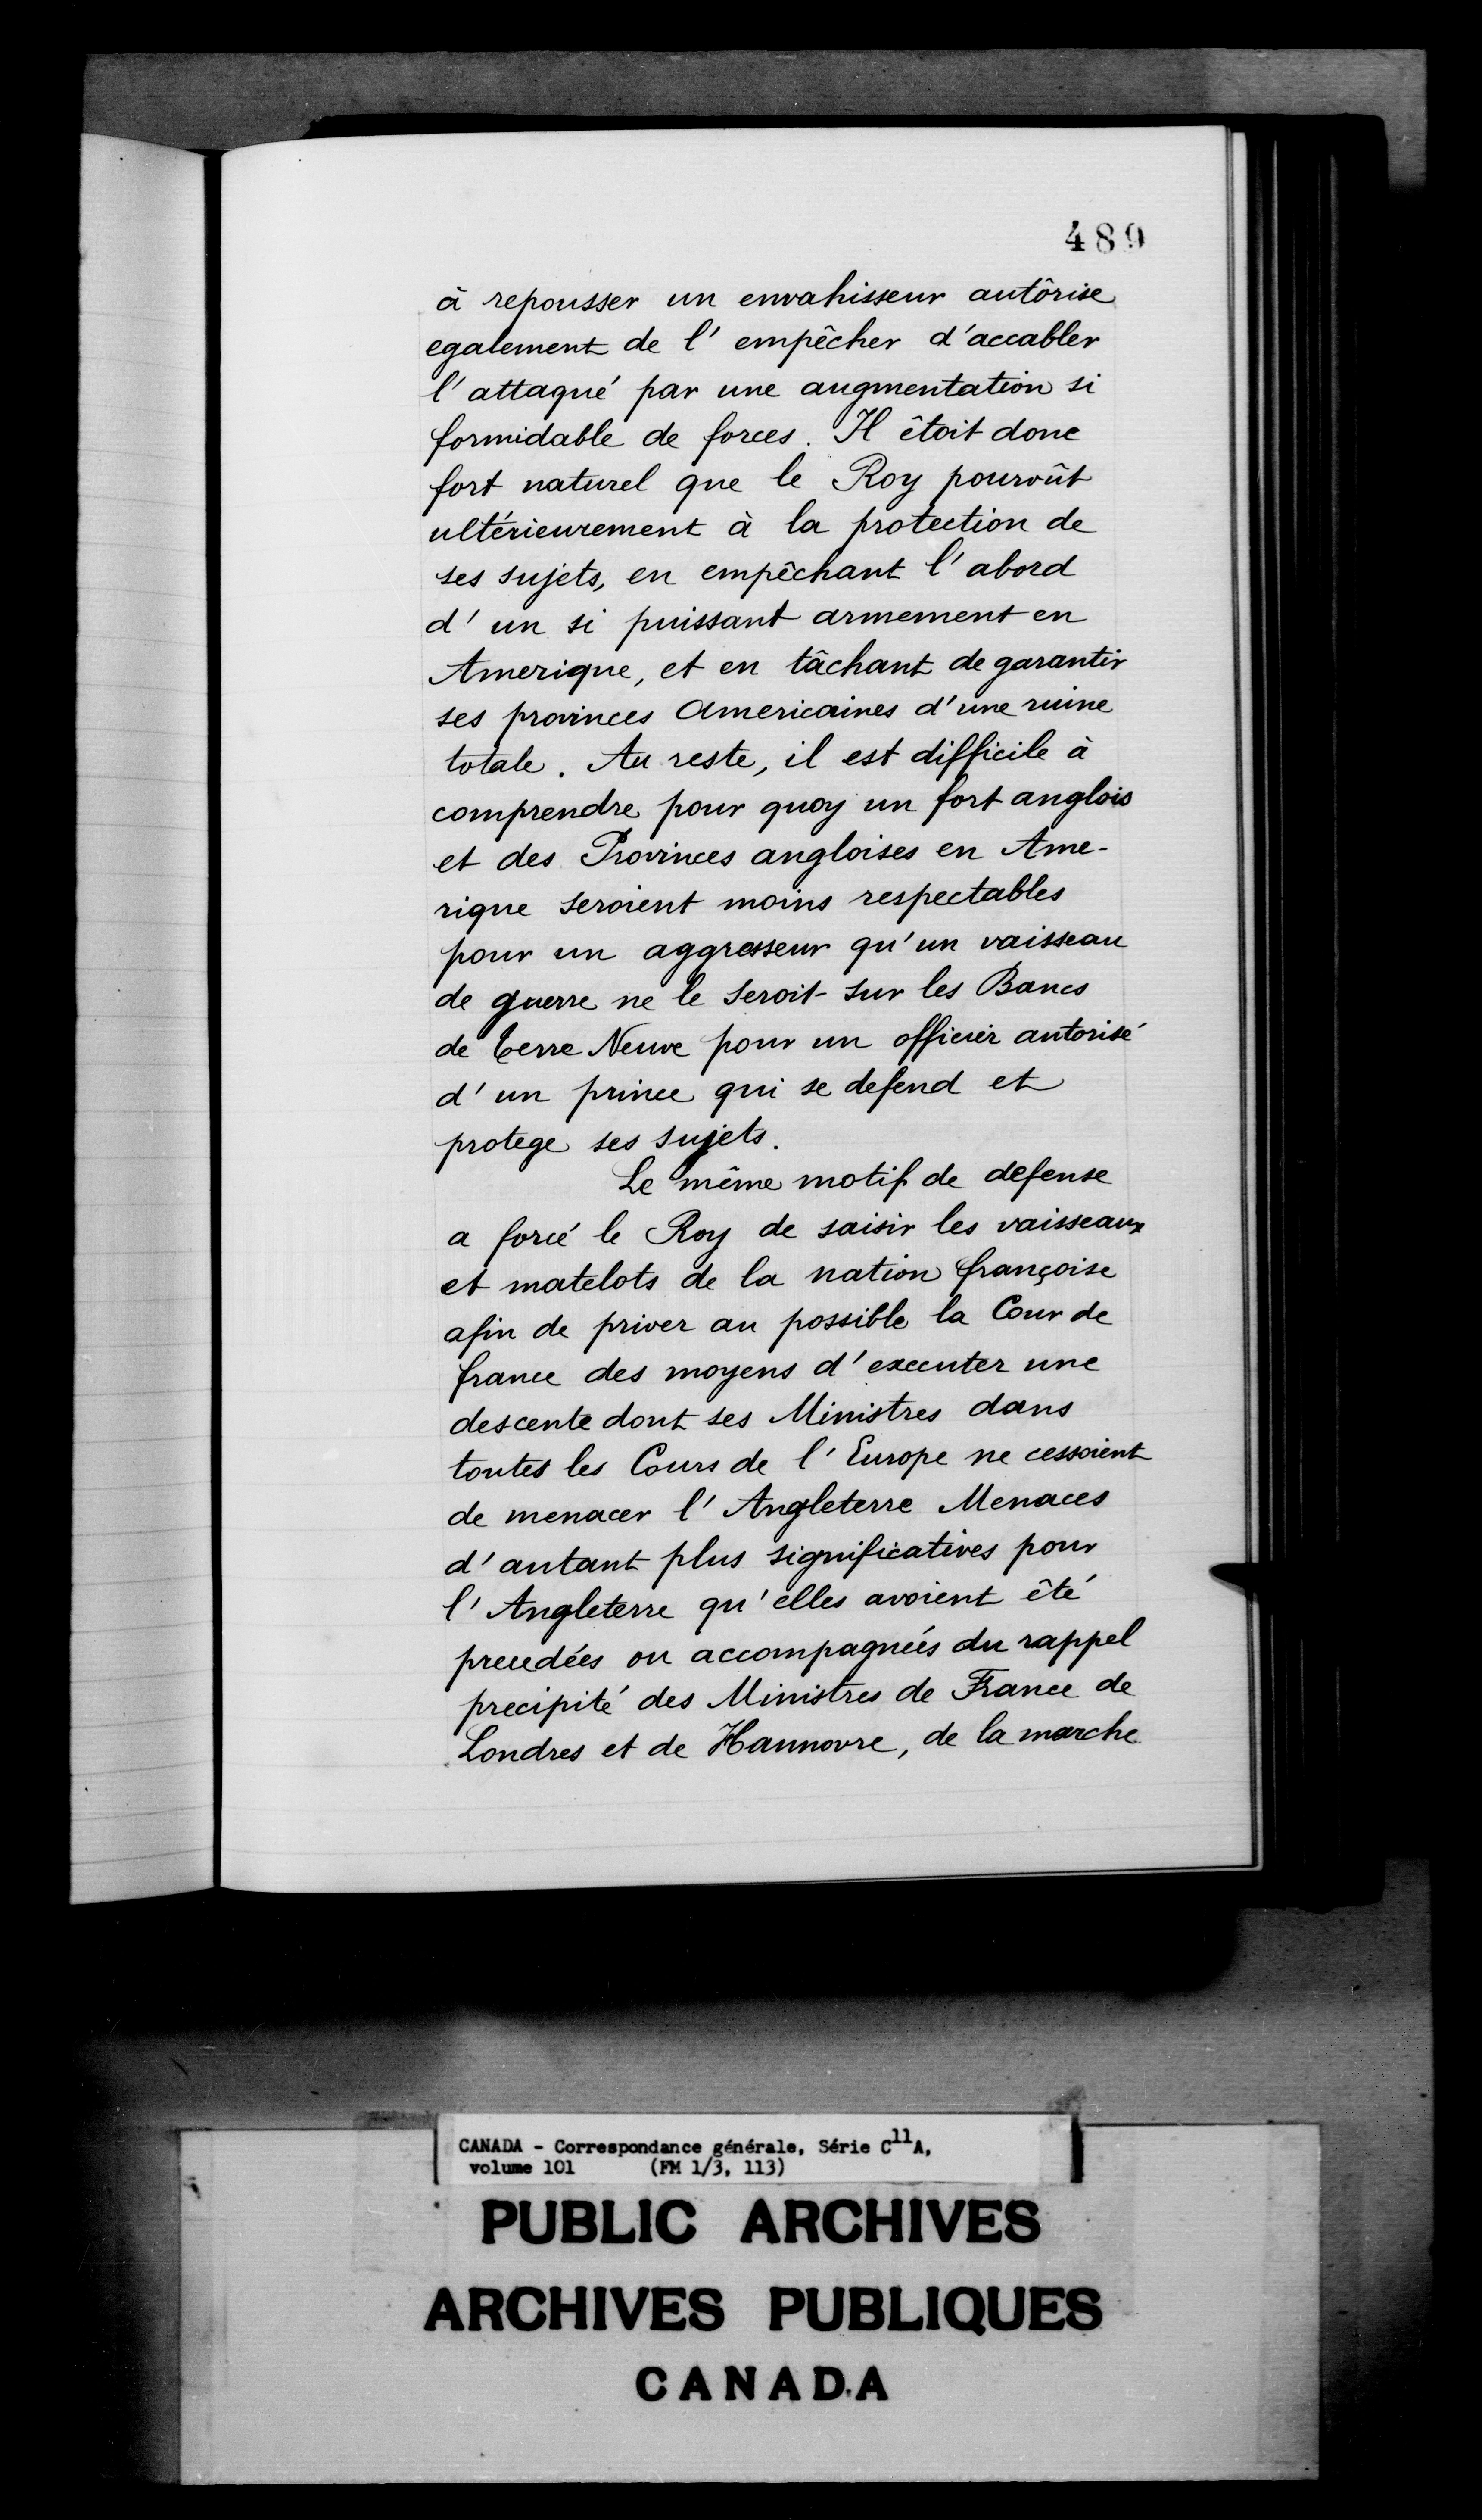 489
à repousser un envahisseur autôrise
egalement de l' empêcher d'accabler
l'attaqué par une augmentation si
formidable de forces. Il êtoit donc
fort naturel que le Roy pourvût
ultérieurement à la protection de
ses sujets, en empêchant l'abord
d' un si puissant armement en
Amerique, et en tâchant de garantir
ses provinces Americaines d'une ruine
totale. Au reste, il est difficile à
comprendre pour quoy un fort anglois
et des Provinces angloises en Ame-
rique seroient moins respectables
pour un aggresseur qu'un vaisseau
de guerre ne le seroit sur les Bancs
de terre Neuve pour un officier autorisé
d' un prince qui se defend et
protege ses sujets.
Le même motif de defense
a forcé le Roy de saisir les vaisseaux
et matelots de la nation françoise
afin de priver au possible la Cour de
france des moyens d'executer une
descente dont ses Ministres dans
toutes les Cours de l' Europe ne cessoient
de menacer l' Angleterre Menaces
d'autant plus significatives pour
l'Angleterre qu'elles avoient êté
precedées ou accompagnées du rappel
precipité des Ministres de France de
Londres et de Hannovre, de la marche
CANADA - Correspondance générale, Série C11A,
volume 101 (FM 1/3, 113)
PUBLIC ARCHIVES
ARCHIVES PUBLIQUES
CANADA